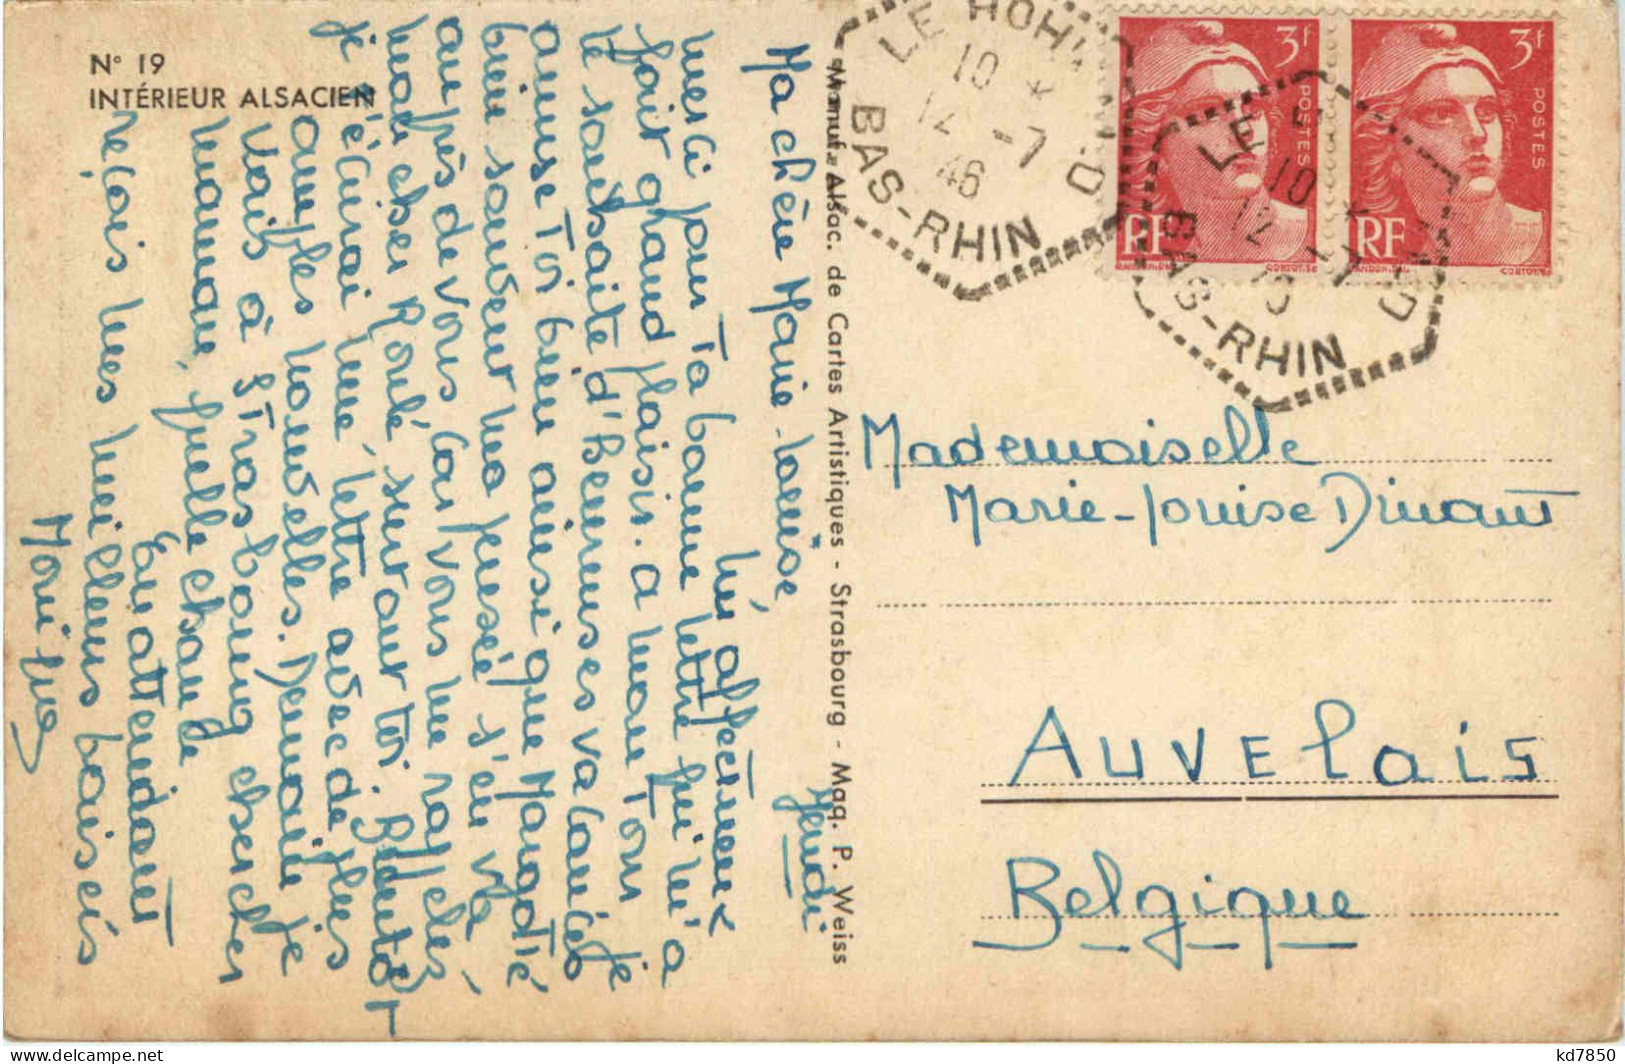 N° 19
INTÉRIEUR ALSACIEN
LE HOHWALD
10 *
12 -7
46
BAS-RHIN
3f
POSTES
RF
3f
POSTES
RF
LE
10 *
12 -7
BAS-RHIN
Manuf. Alsac. de Cartes Artistiques - Strasbourg - Maq. P. Weiss
Jeudi
Ma chère Marie Louise,
Un affectueux
merci pour ta bonne lettre qui m'a
fait grand plaisir. A mon tour je
te souhaite d'heureuses vacances
amuse toi bien ainsi que
bien souvent ma pensée s'en va
auprès de vous car vous me rappelez
mon cher surtout toi. Bientôt
je t'écrirai une lettre avec de plus
amples nouvelles. Demain je
vais à Strasbourg chercher
maman, quelle chance
En attendant
reçois mes meilleurs baisers
Mademoiselle
Marie-Louise Dinant
AUVELAIS
Belgique
kd7850